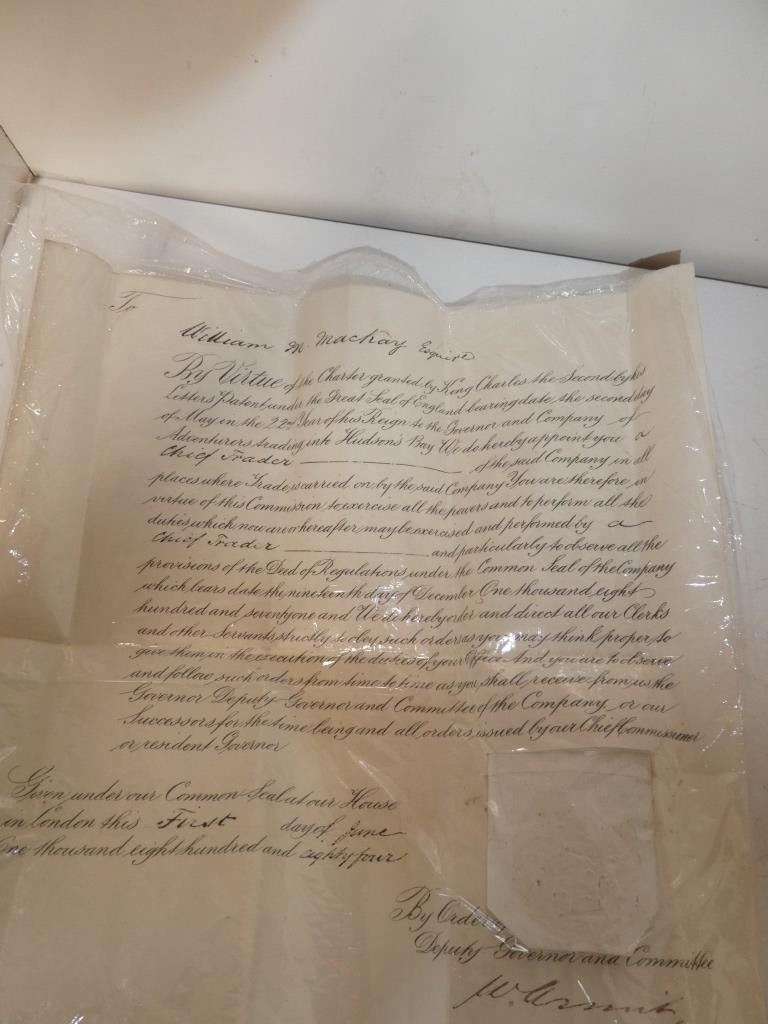 To
William M. Mackay Esquire
By Virtue of the Charter granted by King Charles the Second by his
Letters Patent under the Great Seal of England bearing date the second day
of May in the 22nd Year of his Reign to the Governor and Company of
Adventurers trading into Hudson's Bay We do hereby appoint you a
Chief Trader of the said Company in all
places where Trade is carried on by the said Company You are therefore in
virtue of this Commission to exercise all the powers and to perform all the
duties which now are or hereafter may be exercised and performed by a
Chief Trader and particularly to observe all the
provisions of the Deed of Regulations under the Common Seal of the Company
which bears date the nineteenth day of December One thousand eight
hundred and seventy one and We do hereby order and direct all our Clerks
and other Servants strictly to obey such orders as you may think proper to
give them in the execution of the duties of your Office And you are to observe
and follow such orders from time to time as you shall receive from us the
Governor Deputy Governor and Committee of the Company or our
Successors for the time being and all orders issued by our Chief Commissioner
or resident Governor
Given under our Common Seal at our House
in London this First day of June
One thousand eight hundred and eighty four
By Order
Deputy Governor and Committee
W. Armit